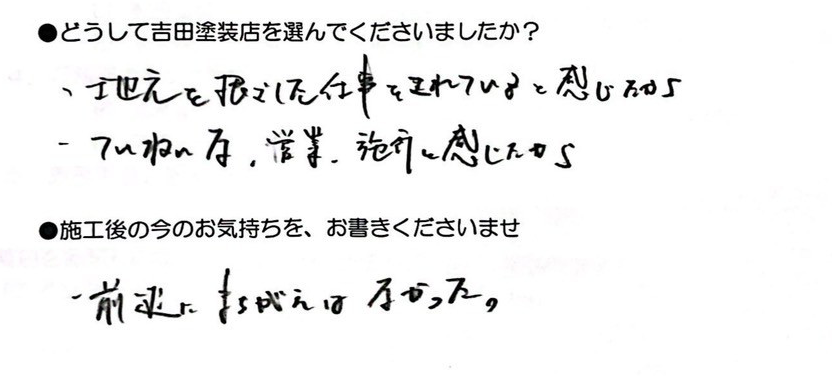 ●どうして吉田塗装店を選んでくださいましたか？
、地元を根ざした仕事をされていると感じたから
- ていねいな、営業、施行と感じたから
●施工後の今のお気持ちを、お書きくださいませ
- 前述にまちがえはなかった。